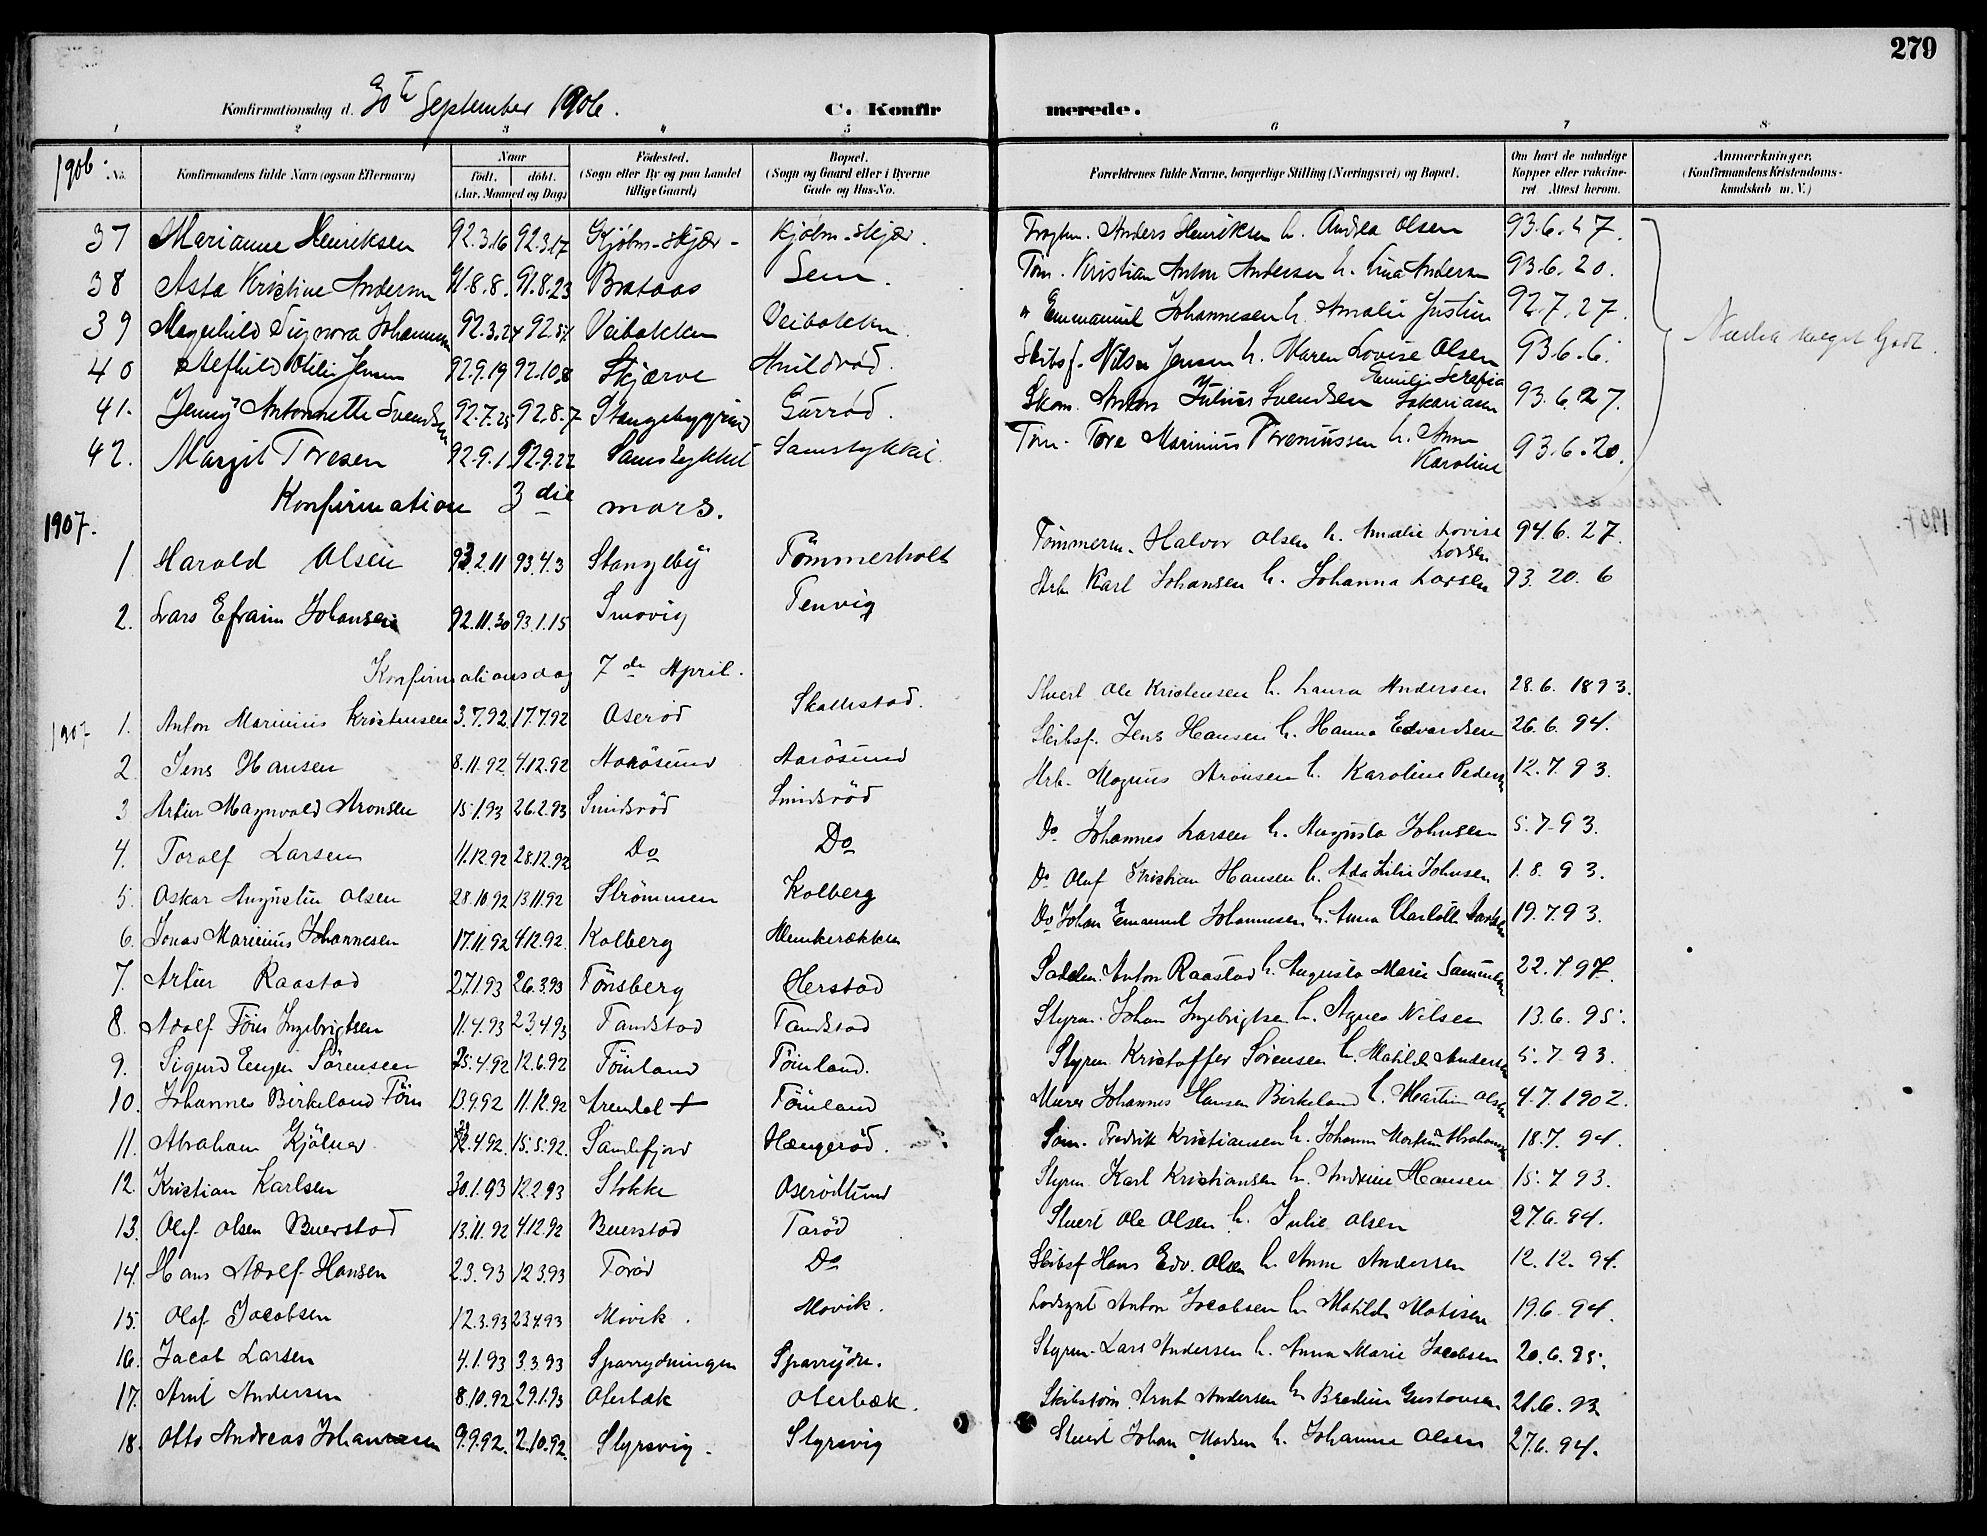 279
Konfirmationsdag d. 30te September 1906. C. Konfirmerede.
1 2 3 4 5 6 7 8
1906. No. Konfirmandens fulde Navn (ogsaa Efternavn) Naar født. døbt. (Aar, Maaned og Dag) Fødested. (Sogn eller By og paa Landet tillige Gaard) Bopæl. (Sogn og Gaard eller i Byerne Gade og Hus-No. Forældrenes fulde Navne, borgerlige Stilling (Næringsvei) og Bopæl. Om havt de naturlige Kopper eller vakcineret Attest herom. Anmærkninger. (Konfirmandens Kristendomskundskab m. V.)
37 Marianne Henriksen 92.3.16 92.3.17 Kjøbm-skjær- Kjøbm-skjær. Anders Henriksen h. Andrea Olsen 93.6.27.
38 Asta Kristine Andersen 91.8.8. 91.8.23 Brataas Sem. Tøm. Kristian Anton Andersen h. Andersen 93.6.20.
39 Magnhild Signora Johannesen 92.3.24 Veibakken Veibakken. " Emmanuel Johannesen h. Amalie Justin 92.7.27.
40 Otilie Jensen 92.9.19 92.10.8 Skjærve Hvildrød. Skibsf. Nilsen Jensen h. Maren Lovise Olsen 93.6.6.
41. Jenny Antonnette Svendsen 92.7.25 92.8.7 Gurrød. Skom. Anton Julius Svendsen Emilie Serafia Sakariasen 93.6.27.
42. Margit Toresen 92.9.1. 92.9.22 Samstykket Samstykket. Tøm. Tore Marinius h. Anne Karoline 93.6.20.
Konfirmation 3die mars.
1907.
1 Harald Olsen 93.2.11 93.4.3 Stangeby Tømmerholt Tømmerm. Halvor Olsen h. Amalie Lovise Larsen 94.6.27.
2. Lars Efraim Johansen 92.11.30 93.1.15 Smovig Tenvig Arb. Karl Johansen h. Johanna Larsen 93.20.6
Konfirmationsdag 7de April.
1907 1. Anton Marinius Kristensen 3.7.92. 17.7.92 Oserød Skallestad. Stuert Ole Kristensen h. Laura Andersen 28.6.1893.
2 Jens Hansen 8.11.92 4.12.92 Aarøsund Aarøsund Skibsf. Jens Hansen h. Hanna Edvardsen 26.6.94.
3 Artur Magnvald Aronsen 15.1.93 26.2.93 Smidsrød Smidsrød Arb. Magnus Aronsen h. Karoline Pedersen 12.7.93.
4. Toralf Larsen 11.12.92 28.12.92 Do Do Do Johannes Larsen h. Augusta Johnsen 5.7.93.
5. Oskar Augustin Olsen 28.10.92 13.11.92 Strømmen Kolberg Do Oluf Kristian Hansen h. Ada Lilie Johnsen 1.8.93.
6. Jonas Marinius Johannesen 17.11.92 4.12.92. Kolberg Munkerækken Do Johan Emanuel Johannesen h. Anna Charlotte 19.7.93.
7. Artur Raastad 27.1.93 26.3.93 Tønsberg Herstad Anton Raastad h. Augusta Marie 22.7.97.
8. AdolfFøin Ingebrigtsen 11.4.93 23.4.93 Tandstad Tandstad Styrm. Johan Ingebrigtsen h. Agnes Nilsen 13.6.95.
9. Sigurd Eugen Sørensen 25.4.92 12.6.92 Føinland Føinland. Styrm. Kristoffer Sørensen h. Matilde Andersen 5.7.93.
10. Johannes Birkeland Føin 13.9.92 11.12.92 Arendal + Føinland Murer Johannes Hansen Birkeland h. Martin Olsen 4.7.1902.
11. Abraham Kjølner 22.4.92. 15.5.92. Sandefjord Hængerød. Søm. Fredrik Kristiansen h. Johanne Abrahamsen 18.7.94.
12. Kristian Karlsen 30.1.93 12.2.93 Stokke Oserødlund Styrm. Karl Kristiansen h. Andrine Hansen 15.7.93.
13. Olaf Olsen Buerstad 13.11.92 4.12.92 Buerstad Torød Stuert Ole Olsen h. Julie Olsen 27.6.94.
14. Hans Adolf Hansen 2.3.93 12.3.93 Torød Do Skibsf Hans Edv. Olsen h. Anne Andersen 12.12.94.
15. Olaf Jacobsen 12.3.93 23.4.93 Movik. Movik. Anton Jacobsen h. Matilde Matisen 19.6.94.
16. Jacob Larsen 4.1.93 3.3.93 Sparrydningen Styrm. Lars Andersen h. Anna Marie Jacobsen 20.6.95.
17. Arnt Andersen 8.10.92. 29.1.93 Oterbæk Oterbæk. Skibstøm. Arnt Andersen h. Bredine Gustavsen 21.6.93
18. Otto Andreas Johannesen 9.9.92. 2.10.92. Styrsvig. Styrsvig Stuert Johan Madsen h. Johanne Olsen 27.6.94.